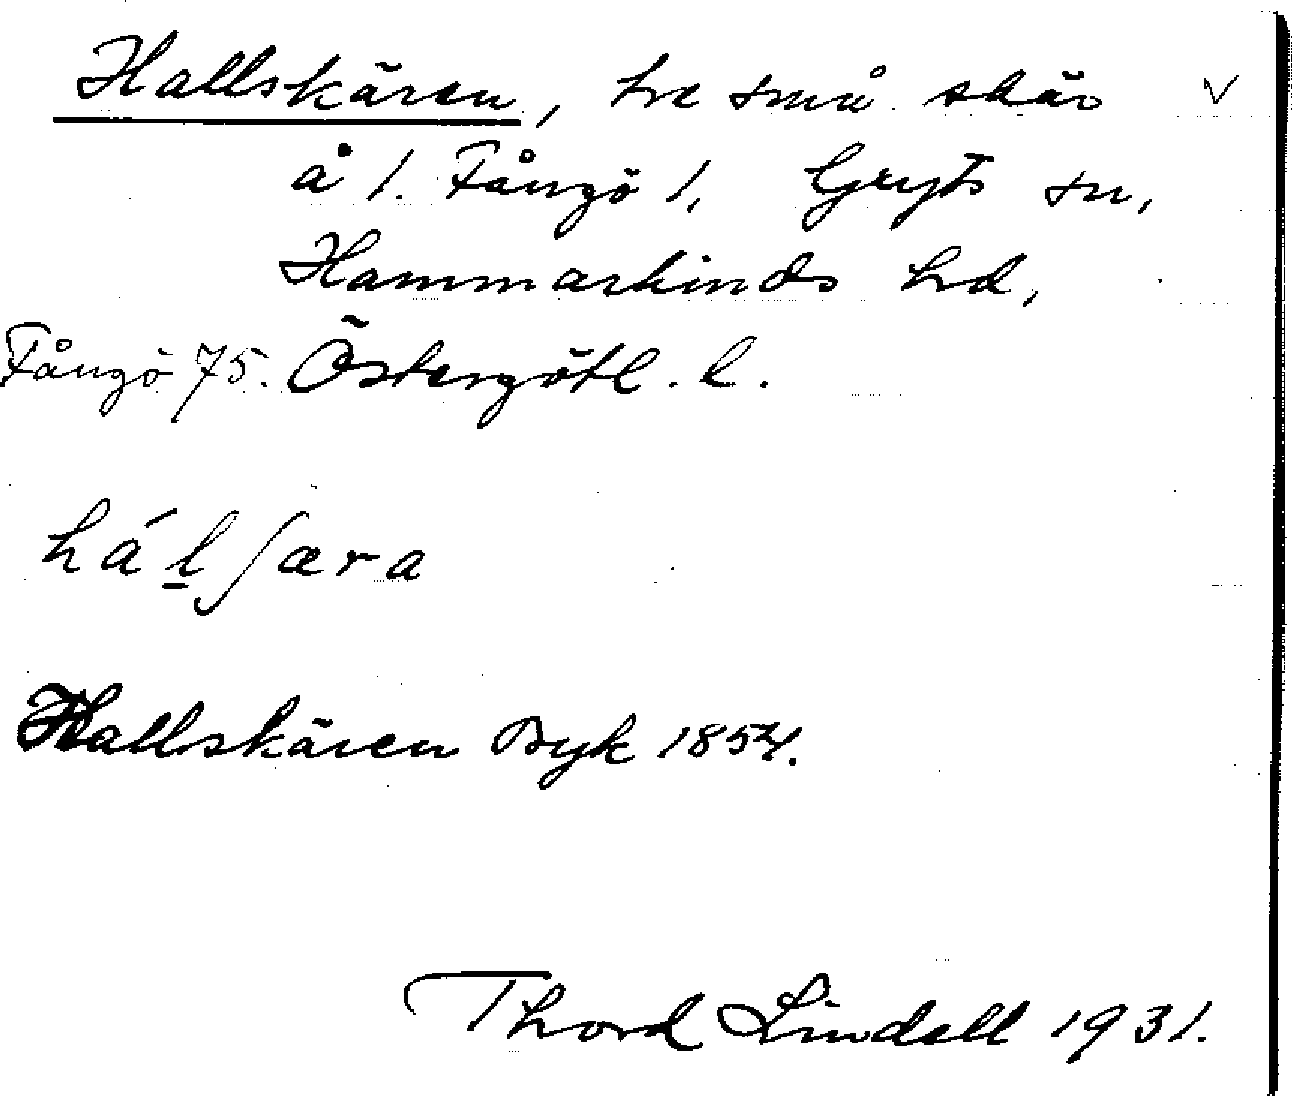 Hallskären, tre små skär v
å 1. Fångö 1, Gryts sn,
Hammarkinds hd,
Fångö 75. Östergötl. l.
há́l̲ʃæra
Hallskären Byk 1857.
Thord Lindell 1931.